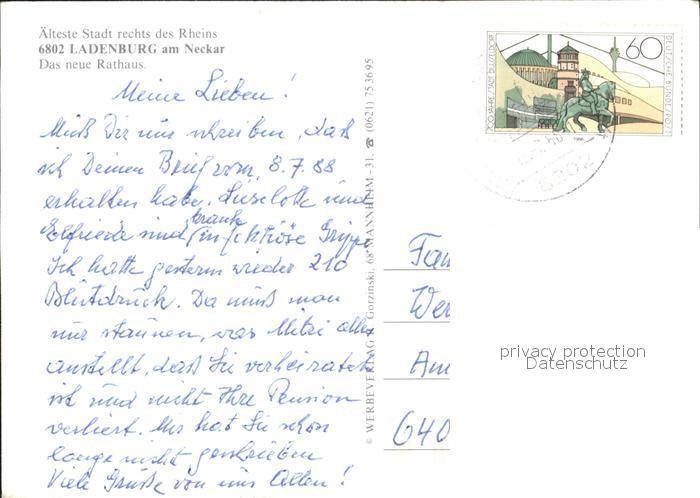 Älteste Stadt rechts des Rheins
6802 LADENBURG am Neckar
Das neue Rathaus.
Meine Lieben!
Muß Dir nur schreiben, daß
ich Deinen Brief vom, 8.7.88
erhalten habe. Lieselotte und
krank
Elfriede sind (infektiöse Grippe
Ich hatte gestern wieder 210
Blutdruck. Da muß man
nur staunen, was Mitzi alles
anstellt, daß Sie verheiratet
ist und nicht Ihre Pension
verliert. Mir hat Sie schon
lange nicht geschrieben
Viele Grüße von uns Allen!
© WERBEVERLAG Gorzinski, 68 MANNHEIM - 31, ☎ (0621) 75 36 95
60
DEUTSCHE BUNDESPOST
700 JAHRE STADT DÜSSELDORF
1988
6802
Fam
Wer
Am
640
privacy protection
Datenschutz